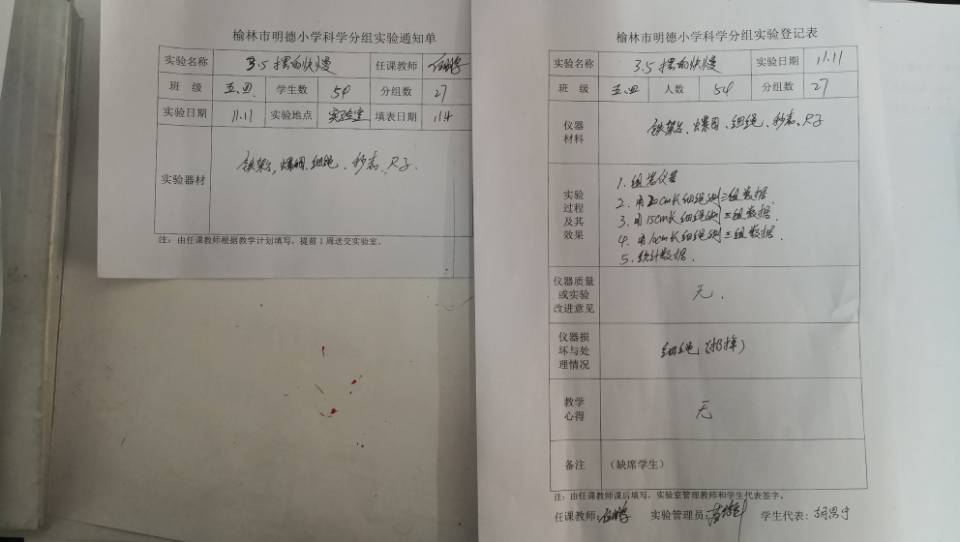 榆林市明德小学科学分组实验通知单
实验名称 3.5摆的快慢 任课教师
班 级 五.四 学生数 54 分组数 27
实验日期 11.11 实验地点 实验室 填表日期 11.4
实验器材 铁架台、螺帽、细绳、秒表、尺子.
注：由任课教师根据教学计划填写，提前1周送交实验室。
榆林市明德小学科学分组实验登记表
实验名称 3.5摆的快慢 实验日期 11.11
班 级 五.四 人数 54 分组数 27
仪器材料 铁架台、螺帽、细绳、秒表、尺子
实验过程及其效果
1.组装仪器
2.用20cm长细绳测三组数据.
3.用15cm长细绳测三组数据.
4.用10cm长细绳测三组数据.
5.统计数据.
仪器质量或实验改进意见 无.
仪器损坏与处理情况 细绳(扔掉)
教学心得 无
备注 （缺席学生）
注：由任课教师课后填写，实验室管理教师和学生代表签字。
任课教师： 实验管理员： 学生代表：胡思宁